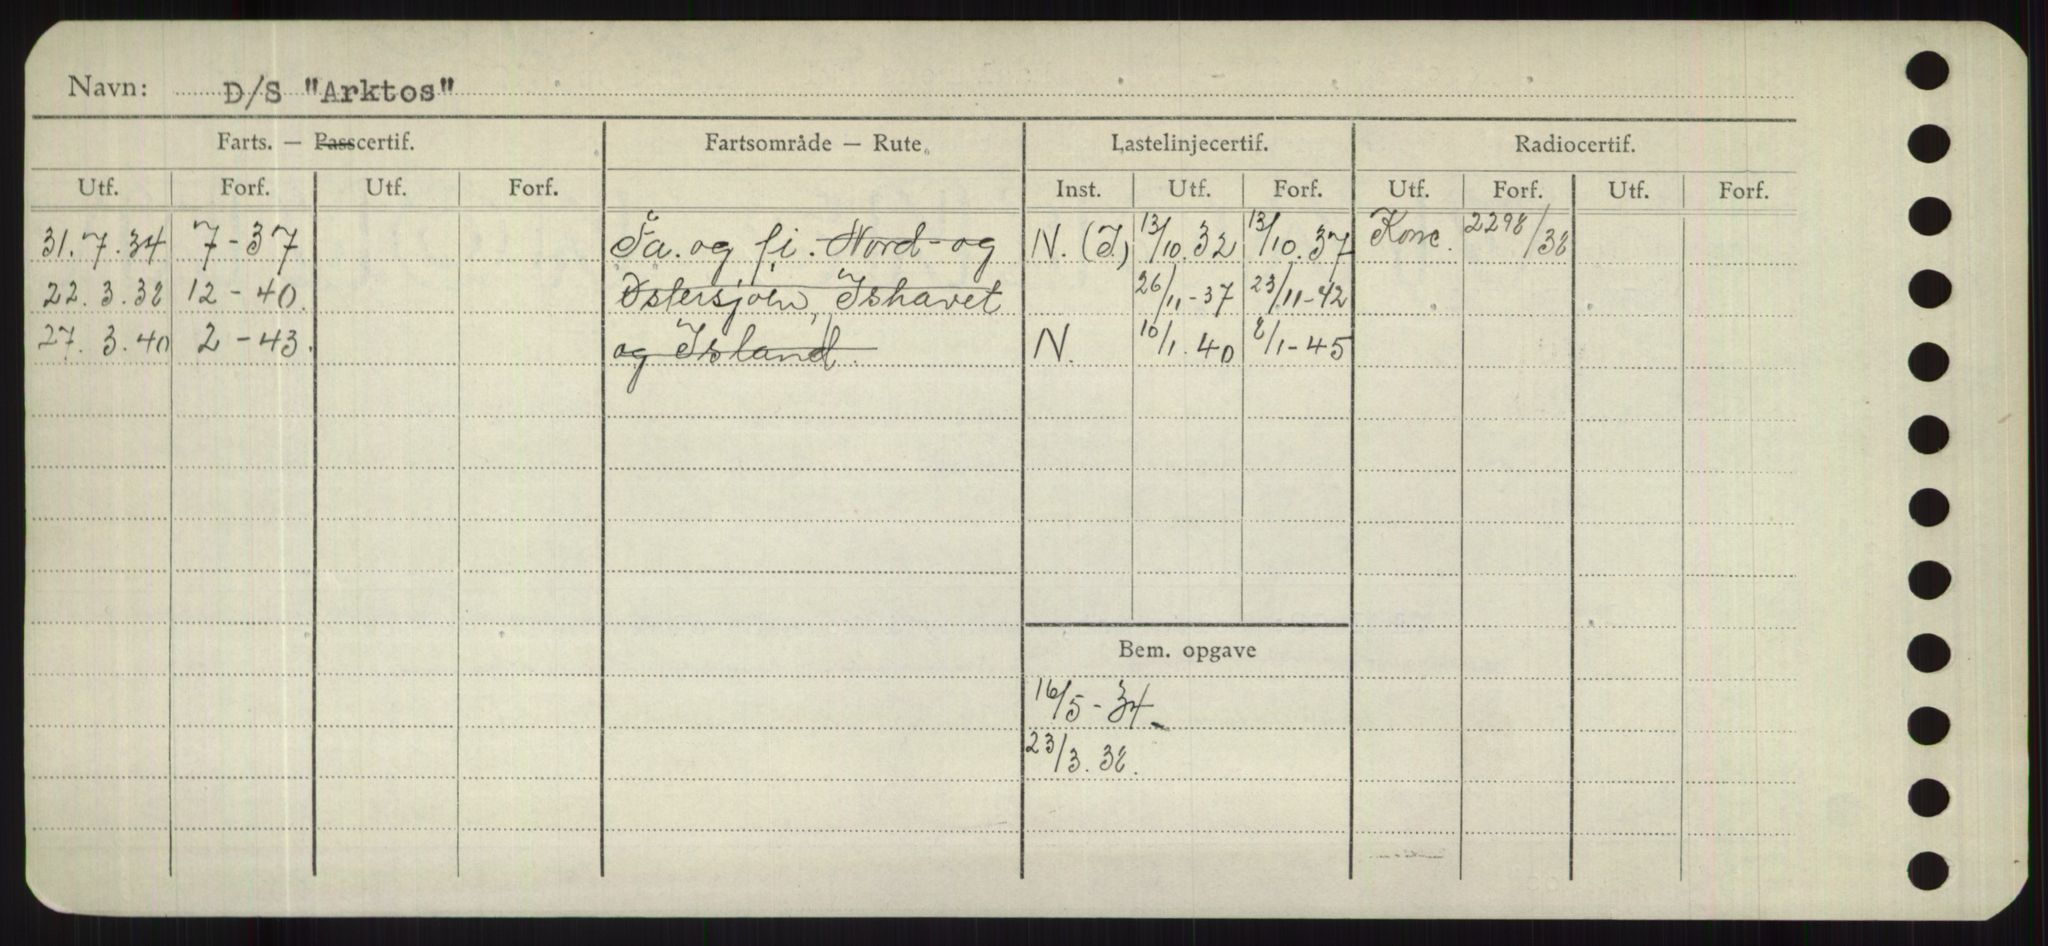 Navn: D/S "Arktos"
Farts. — Passcertif. Fartsområde — Rute. Lastelinjecertif. Radiocertif.
Utf. Forf. Utf. Forf. Inst. Utf. Forf. Utf. Forf. Utf. Forf.
31.7.34 7-37 Fa. og fi. Nord- og N. (I.) 13/10.32 13/10.37 Konc. 2298/38
22.3.38 12-40. Østersjøen, Ishavet 26/11-37 23/11-42
27.3.40 2-43. og Island. N. 10/1.40 8/1-45
Bem. opgave
16/5-34
23/3.38.